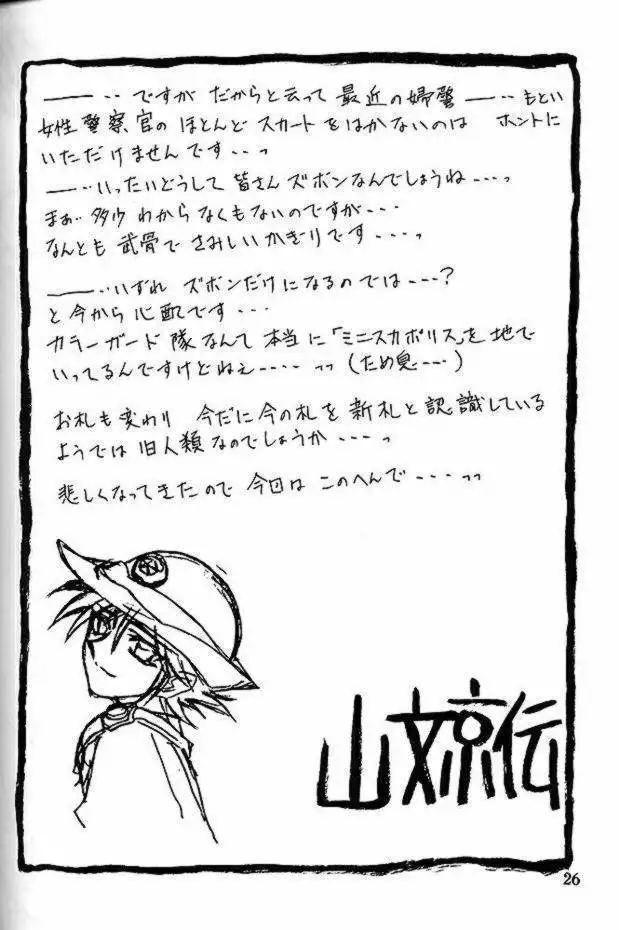 ――‥ ですが だからと云って 最近の婦警 ――‥ もとい
女性警察官の ほとんど スカートをはかないのは ホントに
いただけませんです‥‥っ
――‥いったいどうして 皆さん ズボンなんでしょうね‥‥っ
まぁ‥ 多少 わからなくもないのですが‥‥
なんとも 武骨で さみしいかぎりです‥‥っ
――‥いずれ ズボンだけになるのでは‥‥?
と今から心配です‥‥
カラーガード隊なんて 本当に「ミニスカポリス」を 地で
いってるんですけどねぇ‥‥‥ っっ (ため息‥‥)
お札も変わり 今だに今の札を 新札と認識している
ようでは 旧人類なのでしょうか‥‥っ
悲しくなってきたので 今回は このへんで‥‥っっ
山文京伝
26